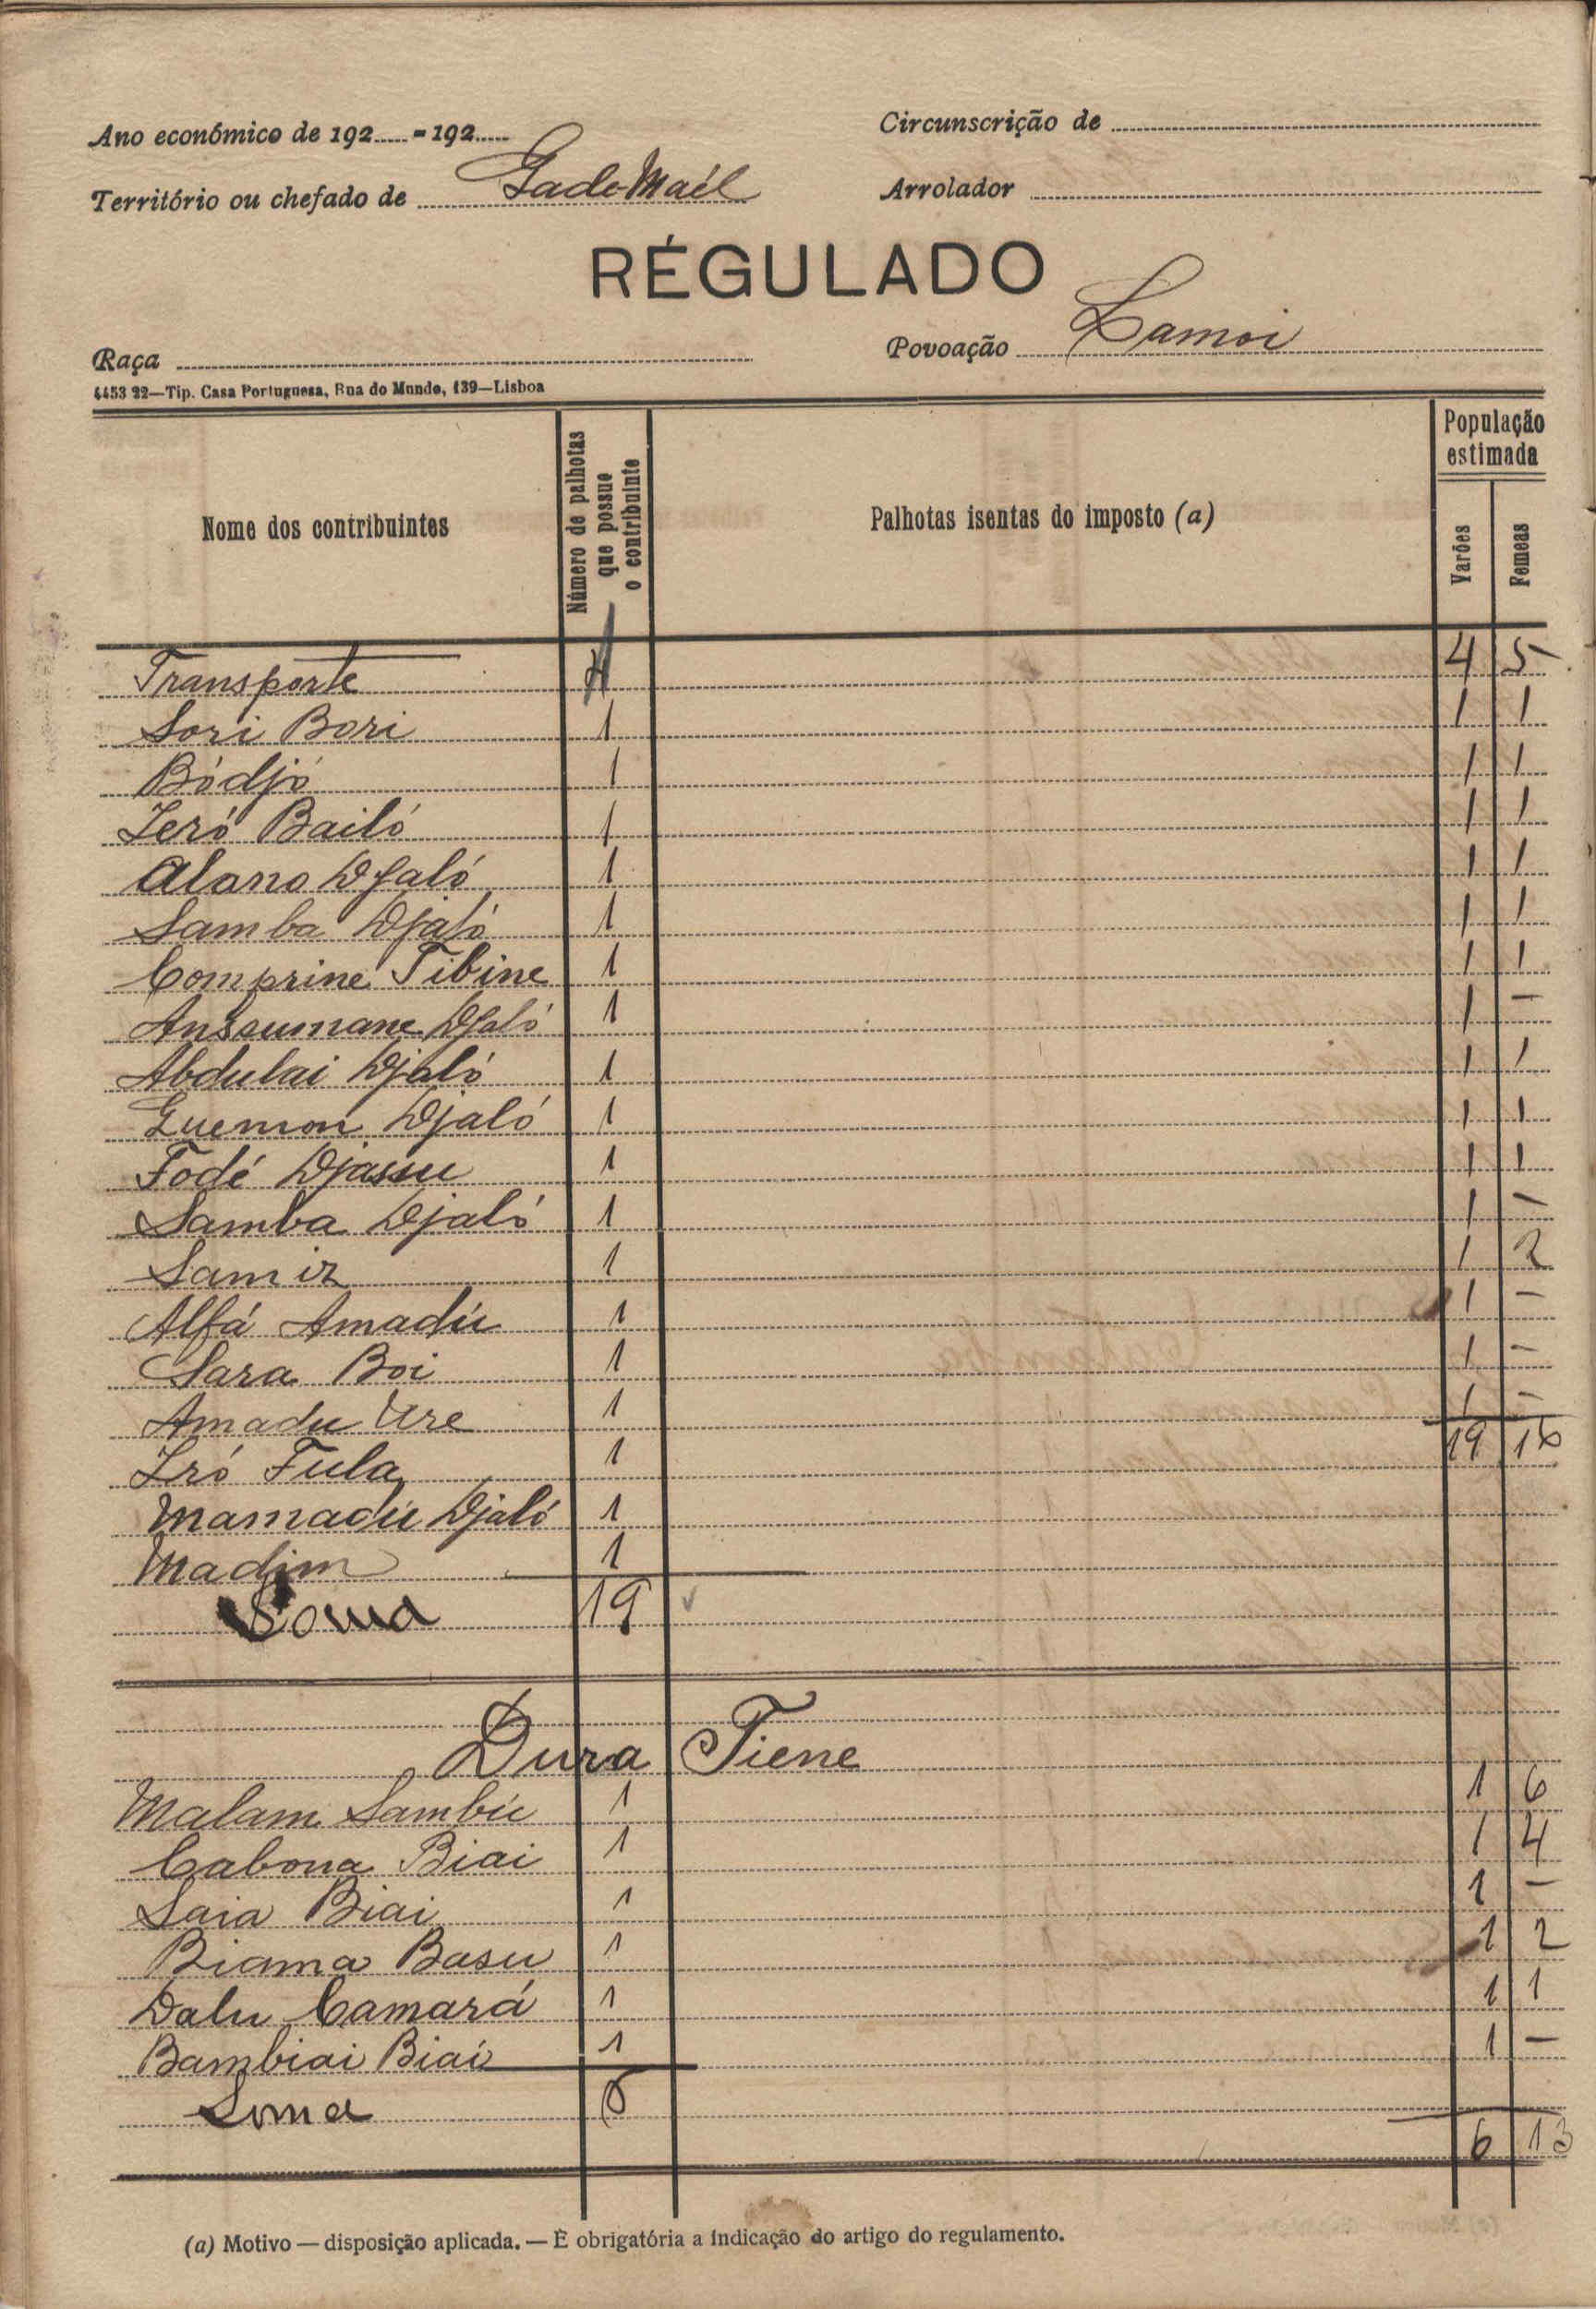 Ano económico de 192.....-192.....
Circunscrição de
Território ou chefado de Gade-Maél
Arrolador
RÉGULADO
Raça
Povoação Lamoi
4453 22—Tip. Casa Portuguesa, Rua do Mundo, 139—Lisboa
Nome dos contribuintes
Número de palhotas que possue o contribuinte
Palhotas isentas do imposto (a)
População estimada
Varões
Femeas
Transporte 4 5
Sori Bori 1 1 1
Bódjó 1 1 1
Iéró Bailó 1 1 1
Alano Djaló 1 1 1
Samba Djaló 1 1 1
Comprine Tibine 1 1 1
Anssumane Djaló 1 1 -
Abdulai Djaló 1 1 1
Guemon Djaló 1 1 1
Fodé Djassu 1 1 1
Samba Djaló 1 1 -
Samir 1 1 2
Alfá Amadú 1 1 -
Sara Boi 1 1 -
Amadu Ure 1 1 -
Iró Fula 1 19 16
Mamadú Djaló 1
Madim 1
Soma 19
Dura Tiene
Malam Sambú 1 1 6
Cabona Biai 1 1 4
Saia Biai 1 1 -
Biama Basu 1 1 2
Dalu Camará 1 1 1
Bambiai Biai 1 1 -
Soma 6
6 13
(a) Motivo — disposição aplicada. — É obrigatória a indicação do artigo do regulamento.